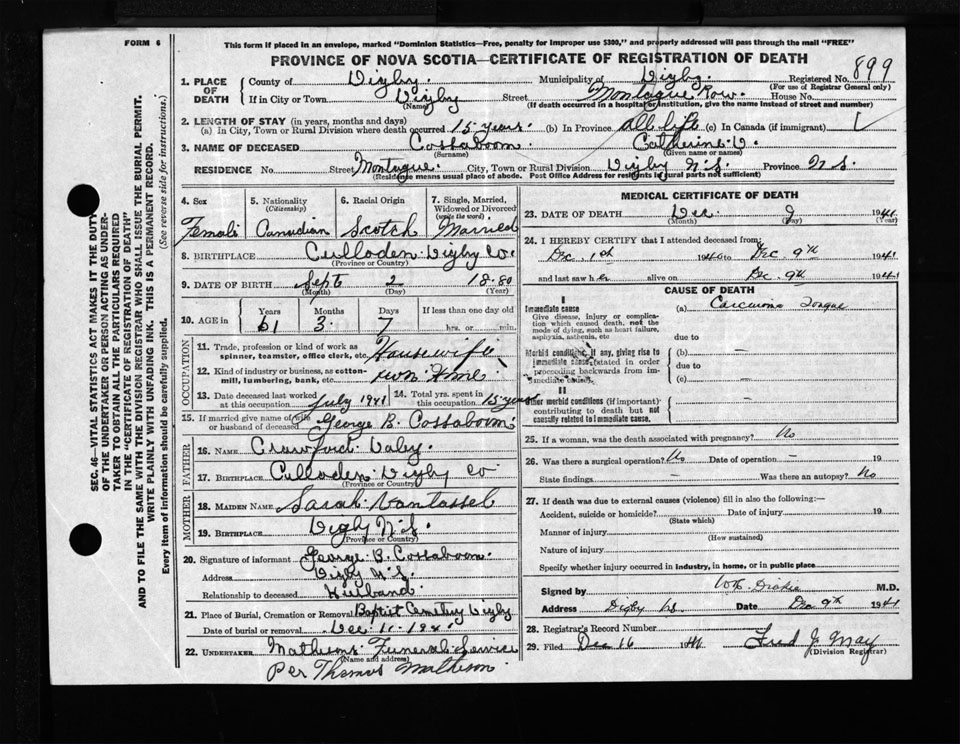 FORM 6
This form if placed in an envelope, marked "Dominion Statistics—Free, penalty for improper use $300," and properly addressed will pass through the mail "FREE"
PROVINCE OF NOVA SCOTIA—CERTIFICATE OF REGISTRATION OF DEATH
SEC. 46—VITAL STATISTICS ACT MAKES IT THE DUTY
OF THE UNDERTAKER OR PERSON ACTING AS UNDER-
TAKER TO OBTAIN ALL THE PARTICULARS REQUIRED
IN THE "CERTIFICATE OF REGISTRATION OF DEATH"
AND TO FILE THE SAME WITH THE DIVISION REGISTRAR WHO SHALL ISSUE THE BURIAL PERMIT.
WRITE PLAINLY WITH UNFADING INK. THIS IS A PERMANENT RECORD.
Every item of information should be carefully supplied. (See reverse side for instructions.)
1. PLACE OF DEATH County of Digby. Municipality of Digby. Registered No. 899
(For use of Registrar General only)
If in City or Town Digby Street Montague Row. House No.
(Name) (If death occurred in a hospital or institution, give the name instead of street and number)
2. LENGTH OF STAY (in years, months and days)
(a) In City, Town or Rural Division where death occurred 15 years. (b) In Province all life (c) In Canada (if immigrant)
3. NAME OF DECEASED Cossaboom. Catherine V.
(Surname) (Given name or names)
RESIDENCE No. Street Montague. City, Town or Rural Division Digby N.S. Province N.S.
(Residence means usual place of abode. Post Office Address for residents in rural parts not sufficient)
4. Sex 5. Nationality (Citizenship) 6. Racial Origin 7. Single, Married, Widowed or Divorced (write the word)
Female Canadian Scotch Married
8. BIRTHPLACE Culloden Digby Co.
(Province or Country)
9. DATE OF BIRTH Sept 2 1880
(Month) (Day) (Year)
10. AGE in Years Months Days If less than one day old
61 3 7 hrs. or min.
OCCUPATION
11. Trade, profession or kind of work as spinner, teamster, office clerk, etc. Housewife
12. Kind of industry or business, as cotton-mill, lumbering, bank, etc. own Home
13. Date deceased last worked at this occupation July 1941 14. Total yrs. spent in this occupation 15 years
15. If married give name of wife or husband of deceased George B. Cossaboom
FATHER
16. NAME Crawford Daley
17. BIRTHPLACE Culloden Digby Co
(Province or Country)
MOTHER
18. MAIDEN NAME Sarah Vantassel
19. BIRTHPLACE Digby N.S.
(Province or Country)
20. Signature of informant George B. Cossaboom.
Address Digby N.S.
Relationship to deceased Husband
21. Place of Burial, Cremation or Removal Baptist Cemetery Digby
Date of burial or removal Dec 11 - 1941
22. UNDERTAKER Mathesons Funeral Service
(Name and address)
Per Thomas Matheson.
MEDICAL CERTIFICATE OF DEATH
23. DATE OF DEATH Dec. 9 1941
(Month) (Day) (Year)
24. I HEREBY CERTIFY that I attended deceased from:
Dec. 1st 1940 to Dec. 9th 1941
and last saw her alive on Dec. 9th 1941
CAUSE OF DEATH
I
Immediate cause (a) Carcinoma Tongue
Give disease, injury or complica-
tion which caused death, not the
mode of dying, such as heart failure,
asphyxia, asthenia, etc
due to
Morbid conditions, if any, giving rise to
immediate cause (stated in order
proceeding backwards from im-
mediate cause).
(b) —
due to
(c) —
II
Other morbid conditions (if important)
contributing to death but not
causally related to immediate cause.
25. If a woman, was the death associated with pregnancy? No
26. Was there a surgical operation? No Date of operation — 19
State findings Was there an autopsy? No
27. If death was due to external causes (violence) fill in also the following:—
Accident, suicide or homicide? Date of injury 19
(State which)
Manner of injury
(How sustained)
Nature of injury
Specify whether injury occurred in industry, in home, or in public place
Signed by M.D.
Address Digby NS Date Dec 9th 1941
28. Registrar's Record Number
29. Filed Dec 16 1941 Fred J. May
(Division Registrar)